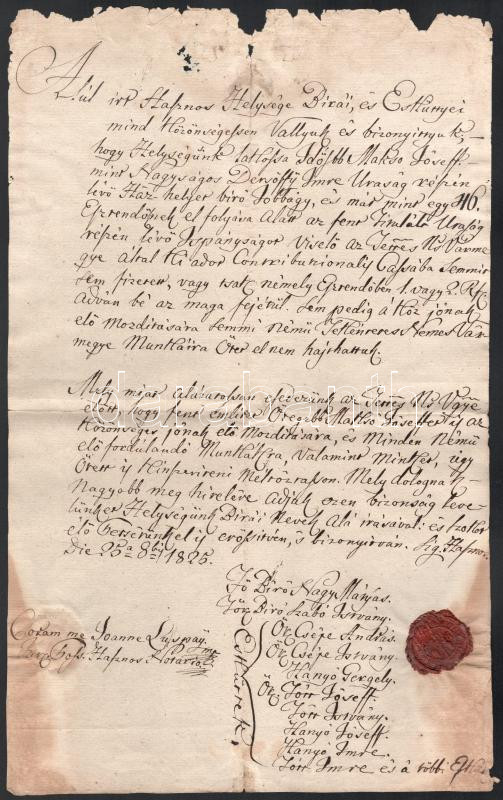 Alúl irt Hasznos Helysége Birái, és Eskuttyei
mind közönségessen Vallyuk és bizonyittyuk,
hogy Helységünk lakossa Idősbb Makso Jóseff
mint Nagyságos Dersöffy Imre Uraság részén
lévő Ház helyet biró Jobbagy, és mar mint egy 46
Esztendőnek el folyása Alatt az fent Titulált Uraság
részén lévő Ispányságot Viselő az Ns Várme
gye által Ki adot Contributionalis Cassába Semmit
sem fizetett, vagy tsak némely Esztendőben 1. vagy 2. Rf.
Adván bé az maga fejétül. Sem pedig a köz jónak
elő mozditására semmi némű Tekéntetes Nemes Vár
megye Munkáira Őtet el nem hajthattuk.
Mely miat alázatossan esedezünk az Ns Vgye
előtt hogy fent emlitet Öregebb Makso Joseffet is az
közönséges jónak elő mozditására, és minden némű
elő fordulando Munkákra, valamint minket, úgy
Őtett is Kinszeriteni Méltóztasson. Mely dolognak
nagyobb meg hitelére Adjuk ezen bizonság leve
lünket Helységünk Birái Nevek Alá irásával: és szokot
elő pecsétünkel is erőssitvén, s bizonyitván. Sig. Hasznos
Die 25a 8bris 1825.
Fő Biró Nagy Mátyás.
Tör. Biró Szabó István.
Coram me Joanne Luspay
Hasznos Notario
Esküttek
Ör. Csépe András.
Ör. Csépe István.
Hanyó Gergely.
Ör. Tótt Jóseff.
Tótt István.
Hanyó Jóseff.
Hanyó Imre.
Tótt Imre és a többi Esküt
darabanth